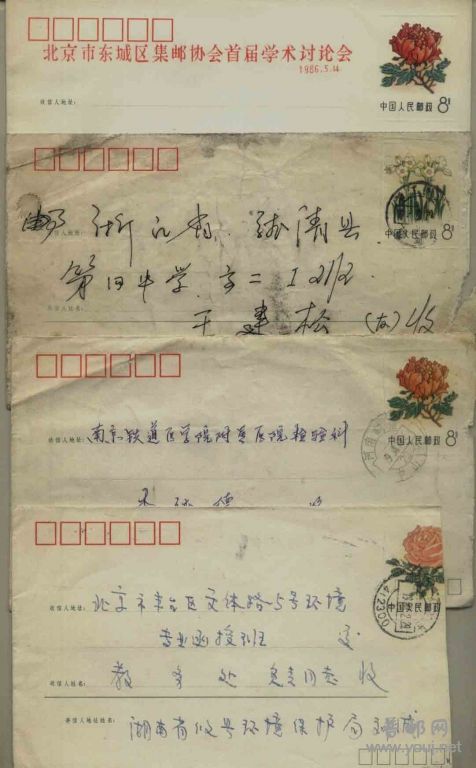 北京市东城区集邮协会首届学术讨论会
1986.5.14
收信人地址:
中国人民邮政 8分
邮 浙江省 德清县
中国人民邮政 8分
第四中学 高二 班
收信人姓名:
王建松 (友) 收
中国人民邮政 8分
收信人地址: 南京铁道医学院附属医院检验科
收信人地址: 北京市丰台区文体路75号环境
中国人民邮政
412300
专业函授班 交
收信人姓名: 教务处 负责同志 收
寄信人地址姓名: 湖南省攸县环境保护局
普邮网
www.youj.net